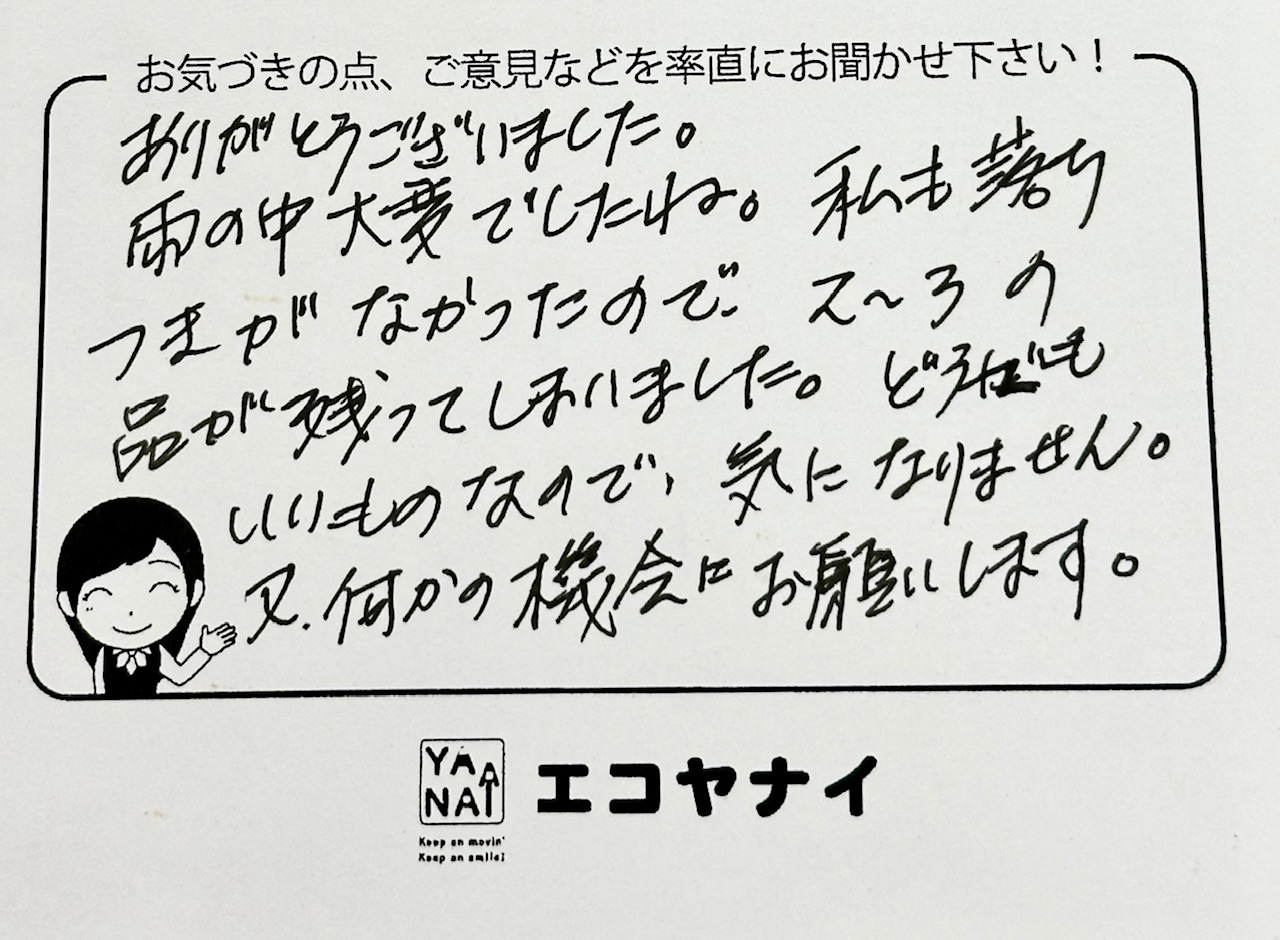 お気づきの点、ご意見などを率直にお聞かせ下さい！
ありがとうございました。
雨の中大変でしたね。私も落ち
つきがなかったので、2～3の
品が残ってしまいました。どうでも
いいものなので、気になりません。
又、何かの機会にお願いします。
YAANAI
エコヤナイ
Keep on movin'
Keep on smile!